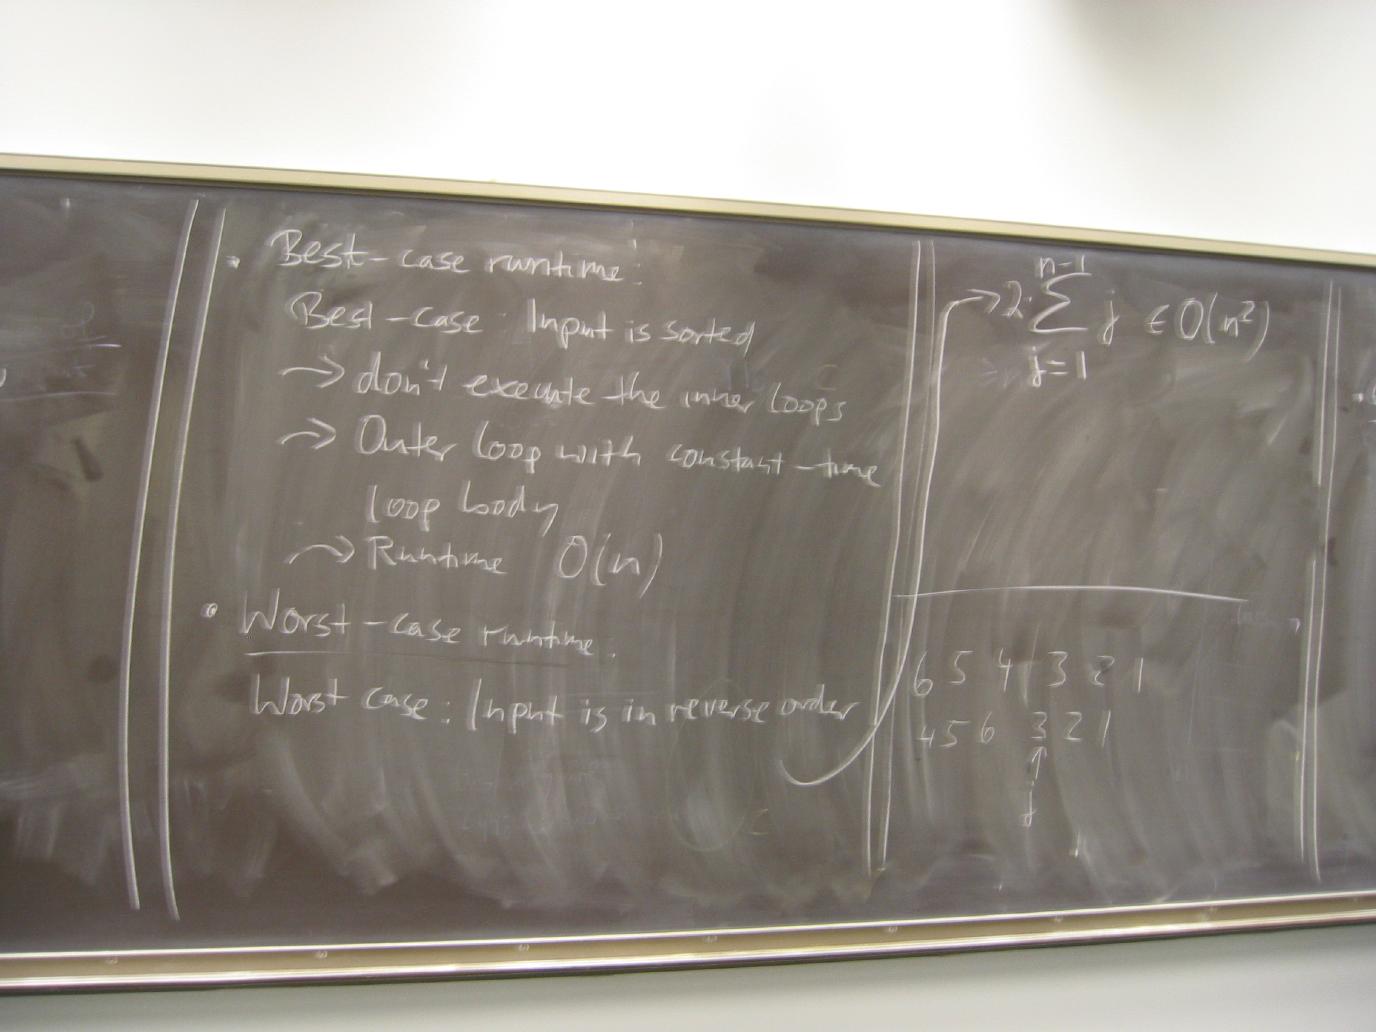 • Best-case runtime:
Best-case: Input is sorted
→ don't execute the inner loops
→ Outer loop with constant-time
loop body
→ Runtime O(n)
• Worst-case runtime:
Worst case: Input is in reverse order
→ 2·∑_{j=1}^{n-1} j ∈ O(n²)
6 5 4 3 2 1
4 5 6 3 2 1
↑
j